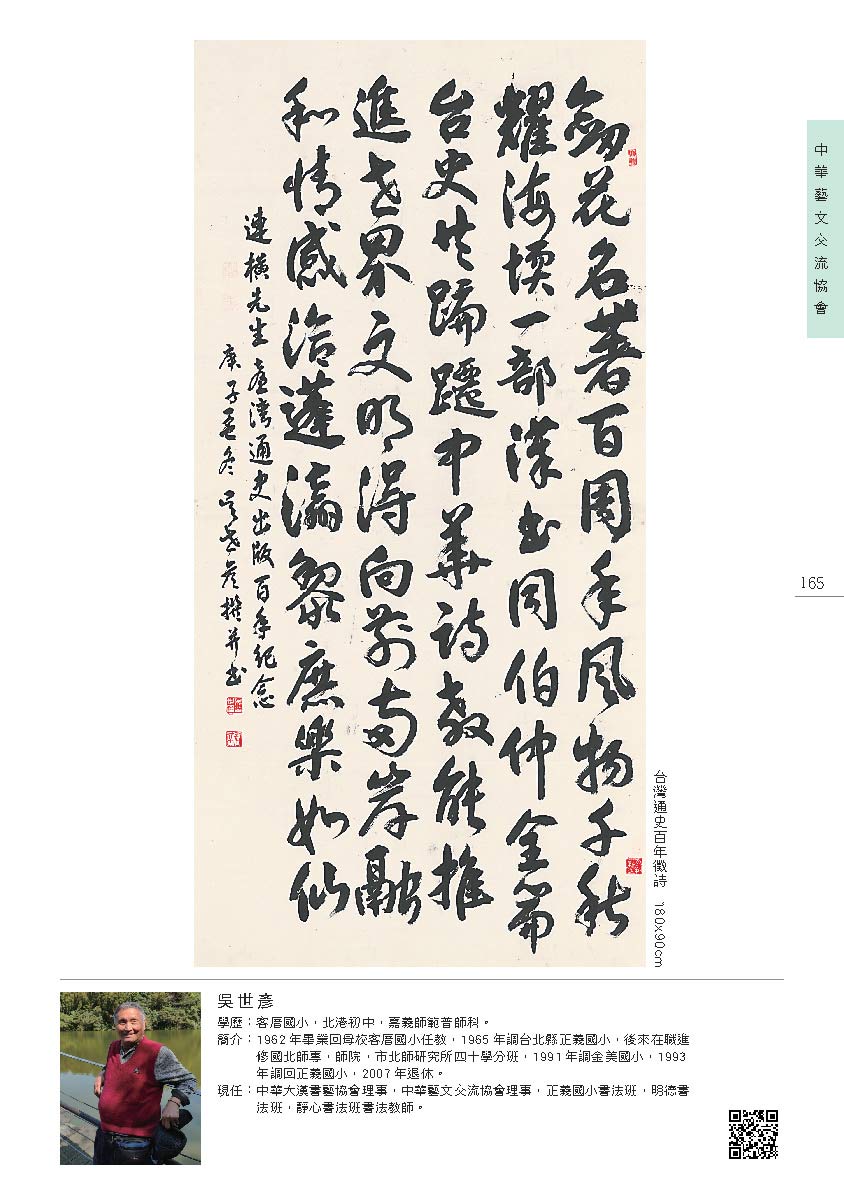 劔花名著百周年風物千秋
耀海堧一部漢書同伯仲全篇
台史共蹁躚中華詩教能推
進世界文明得向前兩岸融
和情感洽蓬瀛黎庶樂如仙
連橫先生臺灣通史出版百年紀念
庚子孟冬吳世彥撰并書
台灣通史百年徵詩 180x90cm
中華藝文交流協會
165
吳世彥
學歷：客厝國小，北港初中，嘉義師範普師科。
簡介：1962 年畢業回母校客厝國小任教，1965 年調台北縣正義國小，後來在職進
修國北師專，師院，市北師研究所四十學分班，1991 年調金美國小，1993
年調回正義國小，2007 年退休。
現任：中華大漢書藝協會理事，中華藝文交流協會理事，正義國小書法班，明德書
法班，靜心書法班書法教師。